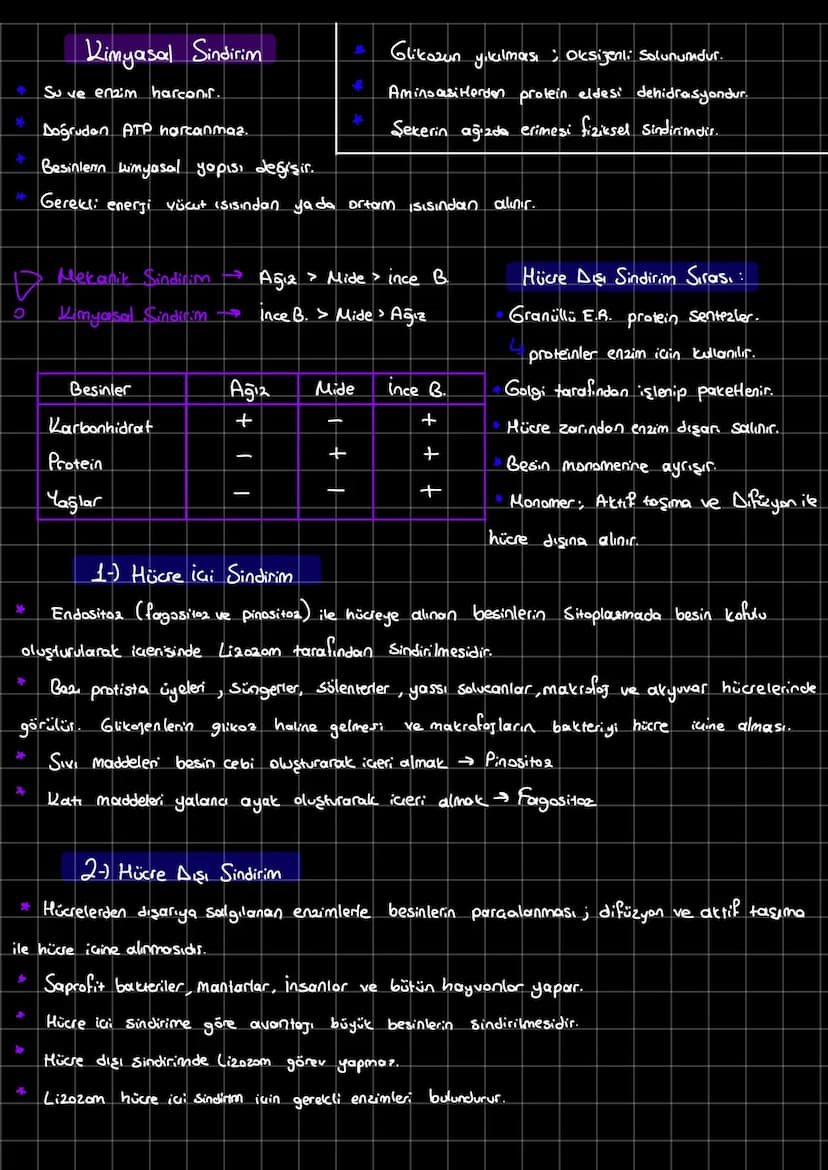 Kimyasal Sindirim
* Su ve enzim harcanır.
* Doğrudan ATP harcanmaz.
* Besinlerin kimyasal yapısı değişir.
* Gerekli enerji vücut ısısından yada ortam ısısından alınır.
* Glikozun yıkılması ; oksijenli solunumdur.
* Aminoasitlerden protein eldesi dehidrasyondur.
* Şekerin ağızda erimesi fiziksel sindirimdir.
Mekanik Sindirim → Ağız > Mide > ince B
Kimyasal Sindirim → İnce B. > Mide > Ağız
Besinler Ağız Mide İnce B.
Karbonhidrat + - +
Protein - + +
Yağlar - - +
Hücre Dışı Sindirim Sırası :
• Granüllü E.R. protein sentezler.
↳ proteinler enzim için kullanılır.
• Golgi tarafından işlenip paketlenir.
• Hücre zarından enzim dışarı salınır.
• Besin monomerine ayrışır.
• Monomer; Aktif taşıma ve Difüzyon ile
hücre dışına alınır.
1-) Hücre içi Sindirim
* Endositoz (fagositoz ve pinositoz) ile hücreye alınan besinlerin Sitoplazmada besin kofulu
oluşturularak içerisinde Lizozom tarafından Sindirilmesidir.
* Bazı protista üyeleri , süngerler, sölenterler , yassı solucanlar, makrofaj ve akyuvar hücrelerinde
görülür. Glikojenlerin glikoz haline gelmesi ve makrofajların bakteriyi hücre içine alması.
* Sıvı maddeleri besin cebi oluşturarak içeri almak → Pinositoz
* Katı maddeleri yalancı ayak oluşturarak içeri almak → Fagositoz
2-) Hücre Dışı Sindirim
* Hücrelerden dışarıya salgılanan enzimlerle besinlerin parçalanması ; difüzyon ve aktif taşıma
ile hücre içine alınmasıdır.
* Saprofit bakteriler, mantarlar, insanlar ve bütün hayvanlar yapar.
* Hücre içi sindirime göre avantajı büyük besinlerin sindirilmesidir.
* Hücre dışı sindirimde Lizozom görev yapmaz.
* Lizozom hücre içi sindirim için gerekli enzimleri bulundurur.